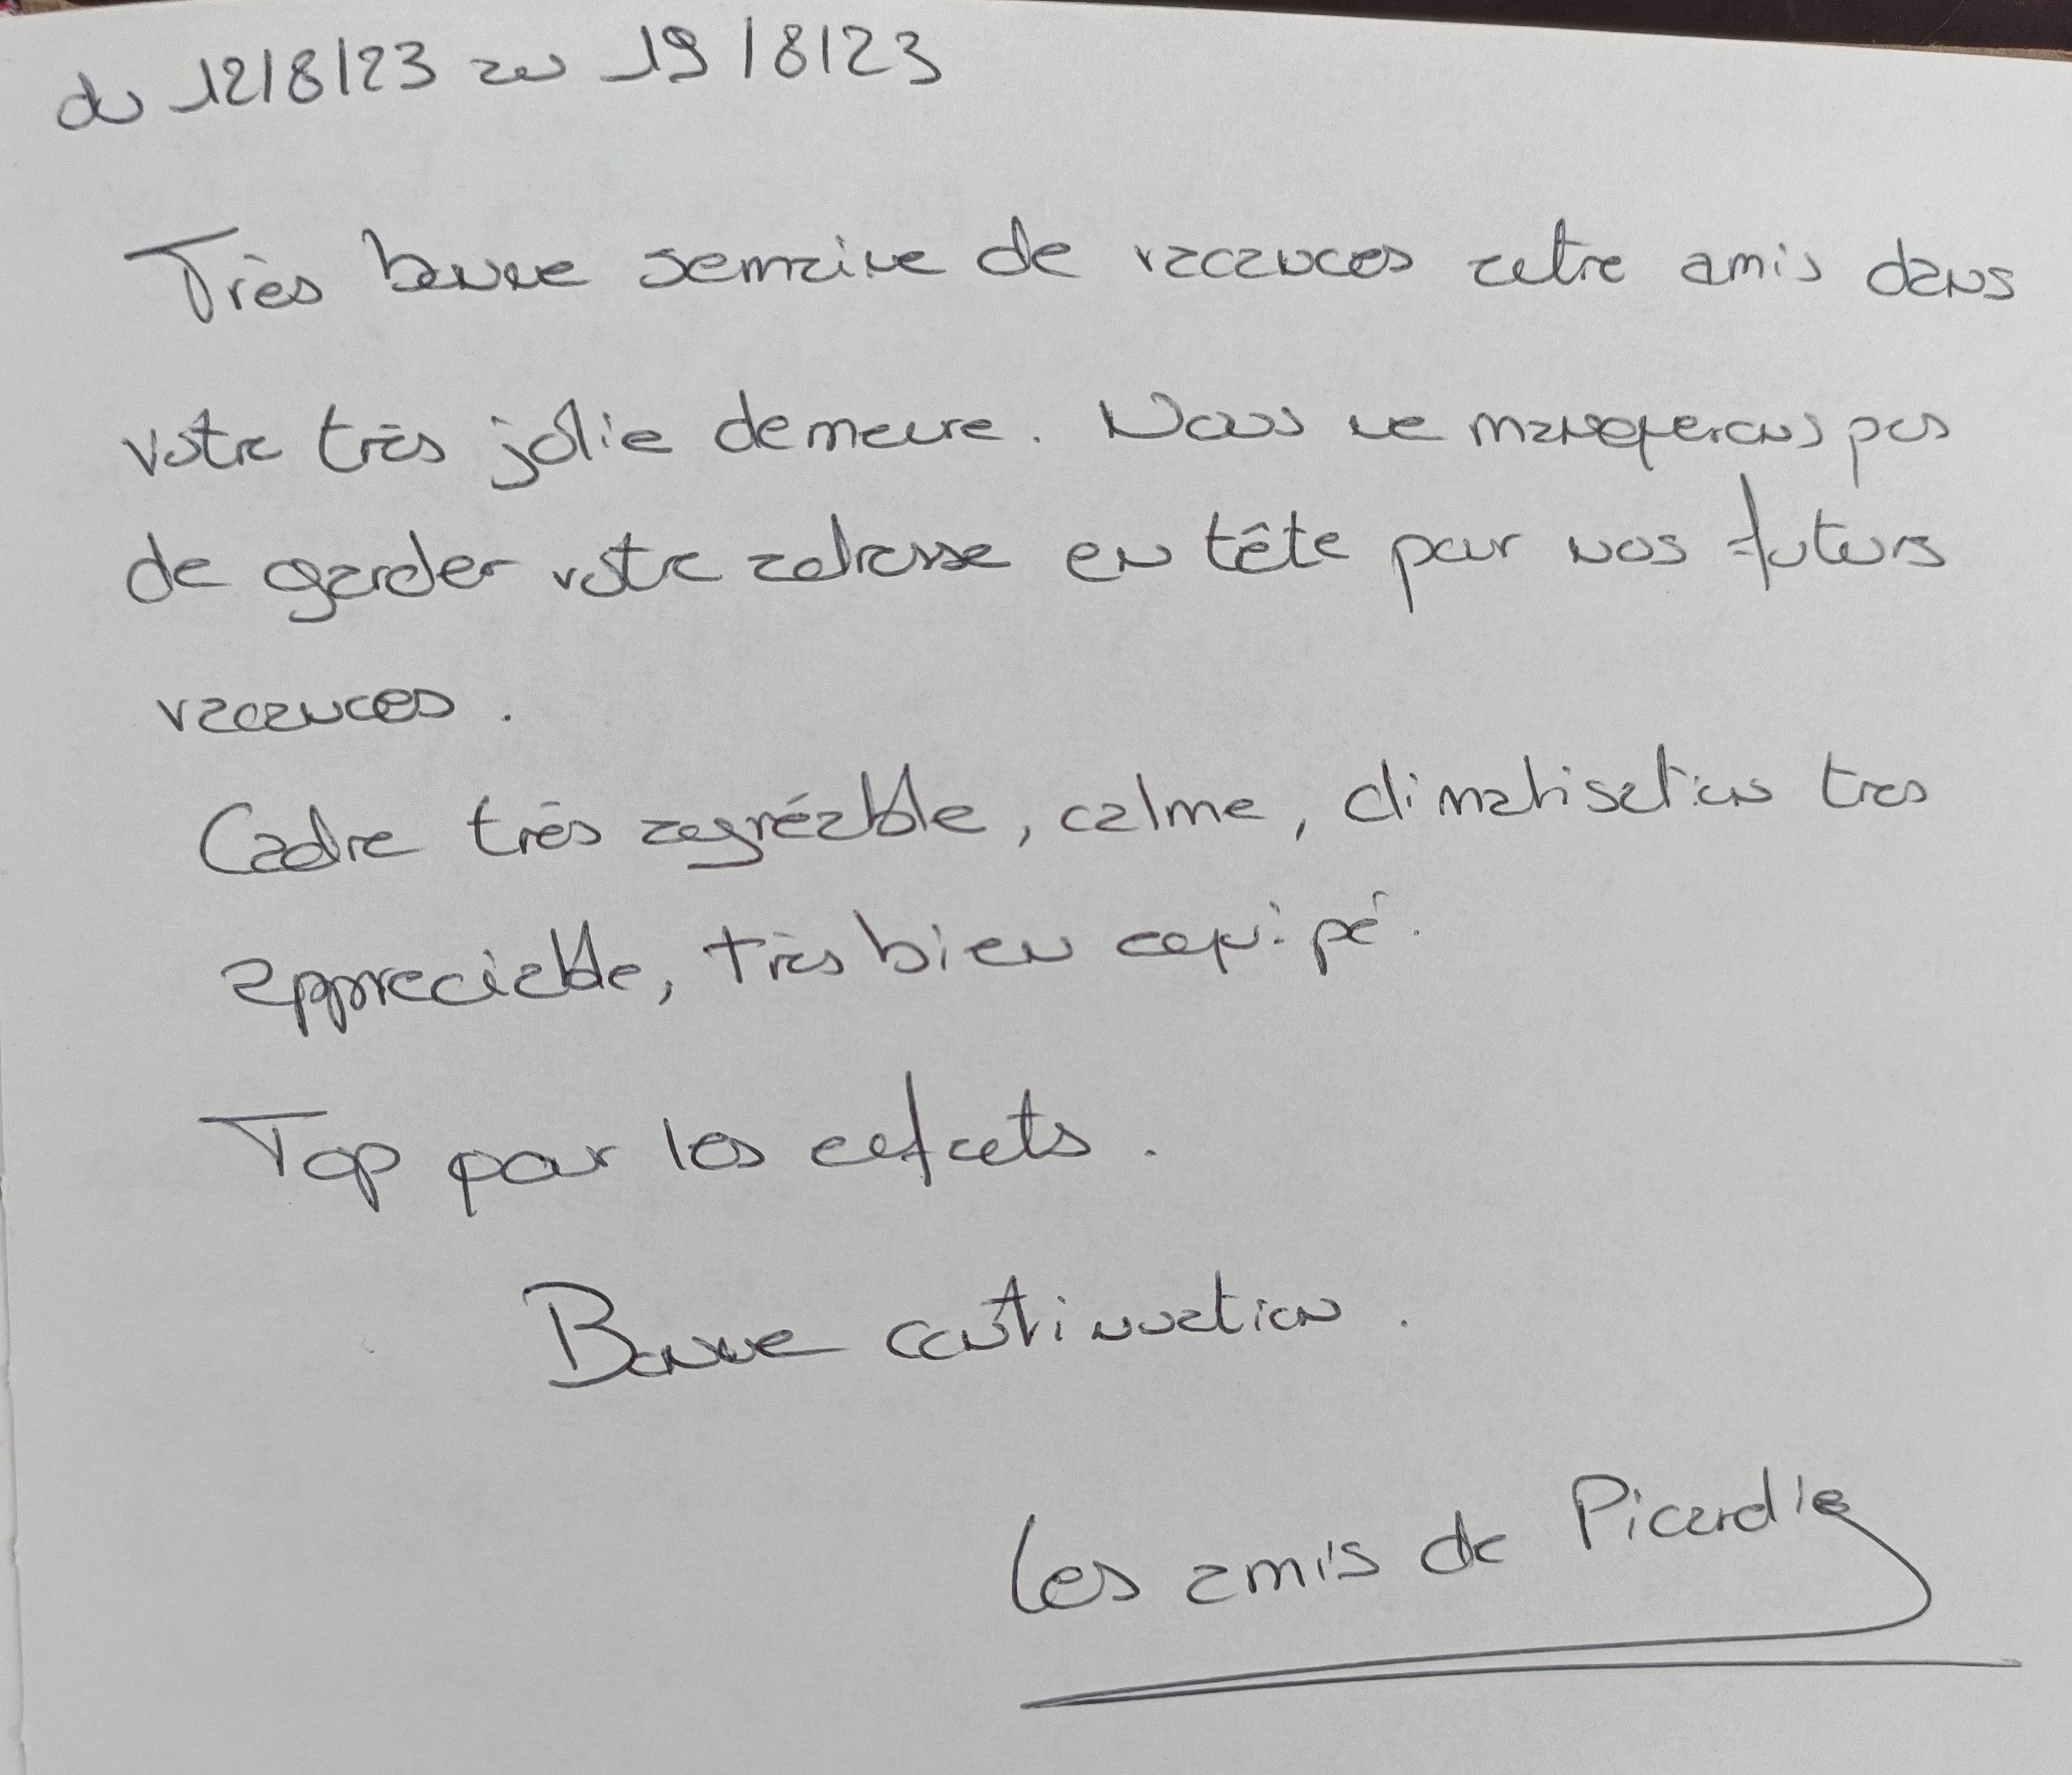 du 12/8/23 au 19/8/23
Très bonne semaine de vacances entre amis dans
votre très jolie demeure. Nous ne manquerons pas
de garder votre adresse en tête pour nos futurs
vacances.
Cadre très agréable, calme, climatisation tres
appreciable, très bien equipé.
Top pour les enfants.
Bonne continuation.
Les amis de Picardie